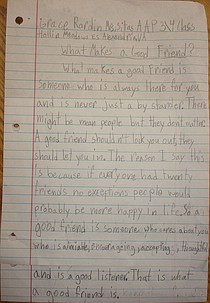 Grace Rardin Ms. Sitas AAP 3rd Class
Hollin Meadows in Alexandria VA
What Makes a Good Friend?
What makes a good friend is
someone who is always there for you
and is never just a by stander. There
might be mean people but they dont matter.
A good friend shouldn't lock you out, they
should let you in. The reason I say this
is because if everyone had twenty
friends no exceptions people would
probably be more happy in life. So a
good friend is someone who cares about you
who is available, encouraging,
and is a good listener. That is what
a good friend is.